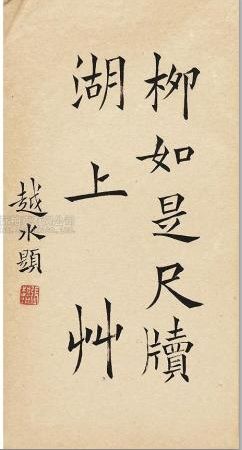 柳如是尺牘
湖上艸
越水顕